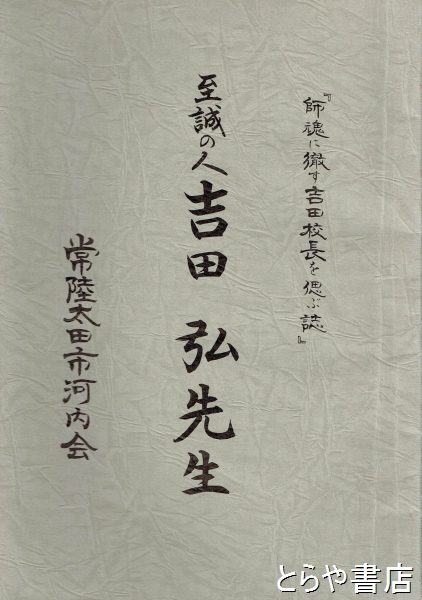 『師魂に徹す吉田校長を偲ぶ誌』
至誠の人 吉田 弘先生
常陸太田市河内会
とらや書店